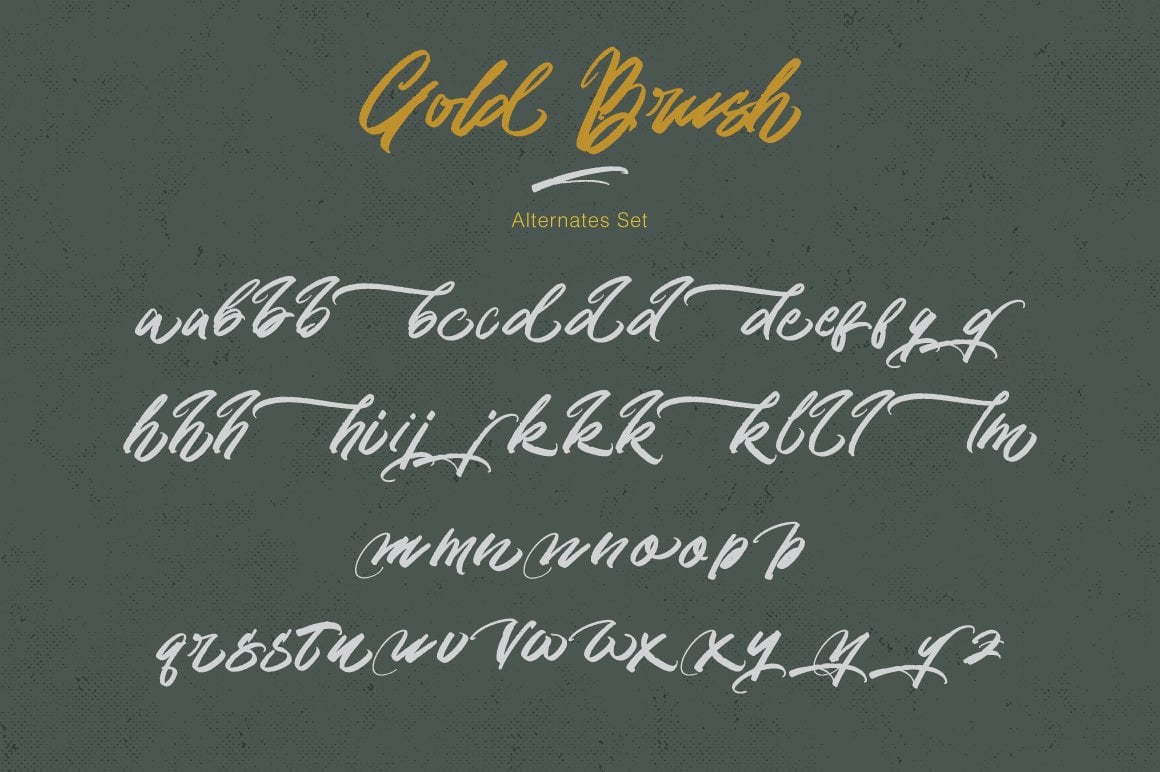 Gold Brush
Alternates Set
aabbbbccdddddeefffggg
hhhhiijjkkkkklllllm
mmnnnnooopp
qrssstuuvvwwxxyyyz